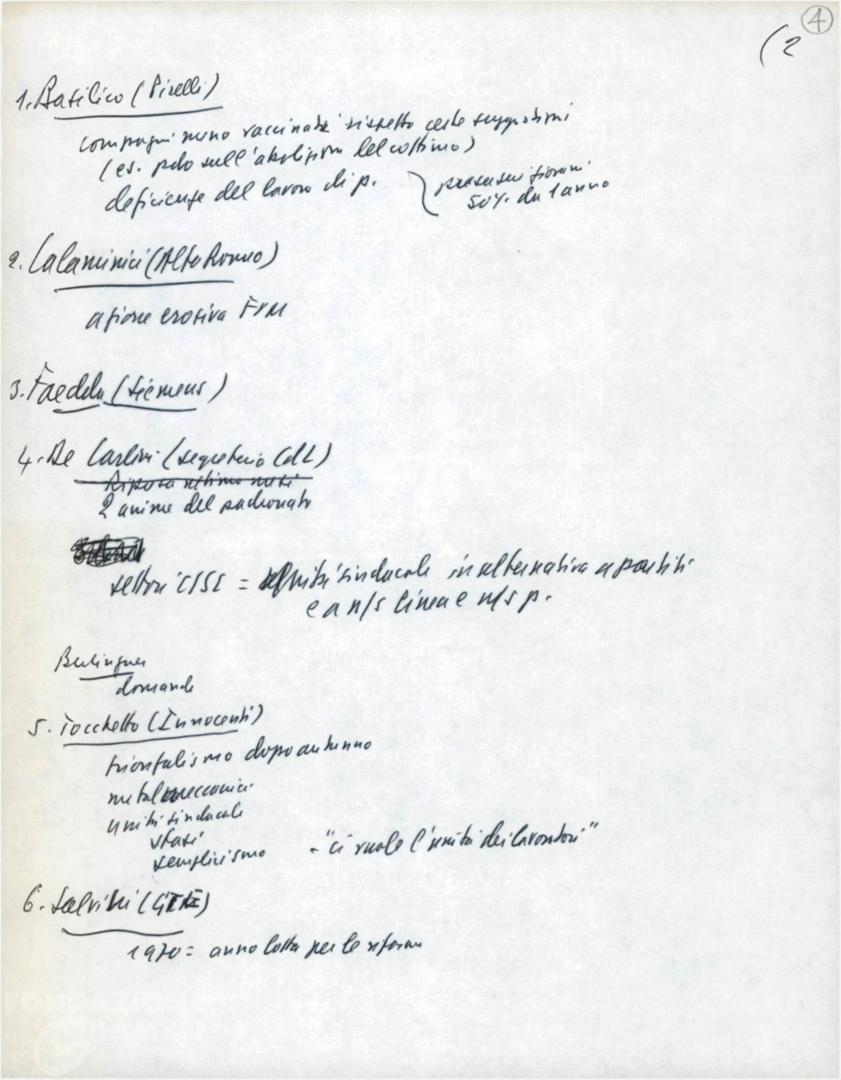 4
(2
1. Basilico (Pirelli)
compagni meno vaccinati rispetto certe suggestioni
(es. polo sull'abolizione del cottimo)
deficienze del lavoro di p. } presa sui giovani
50% da 1 anno
2. Calaminici (Alfa Romeo)
azione erosiva FIM
3. Faedda (Siemens)
4. De Carlini (segretario CdL)
2 anime del padronato
settori CISL = unità sindacale in alternativa a partiti
e a n/s linea e n/s p.
Berlinguer
domande
5. Tocchetto (Innocenti)
trionfalismo dopo autunno
metalmeccanici
unità sindacale
stasi
semplicismo - "ci vuole l'unità dei lavoratori"
6. Salvini (GTE)
1970 = anno lotta per le riforme
FONDAZIONE